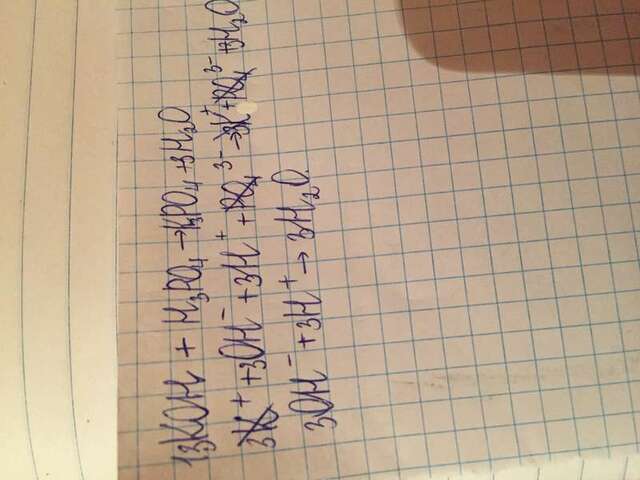 1) 3KOH + H₃PO₄ → K₃PO₄ + 3H₂O
3K⁺ + 3OH⁻ + 3H⁺ + PO₄³⁻ → 3K⁺ + PO₄³⁻ + 3H₂O
3OH⁻ + 3H⁺ → 3H₂O